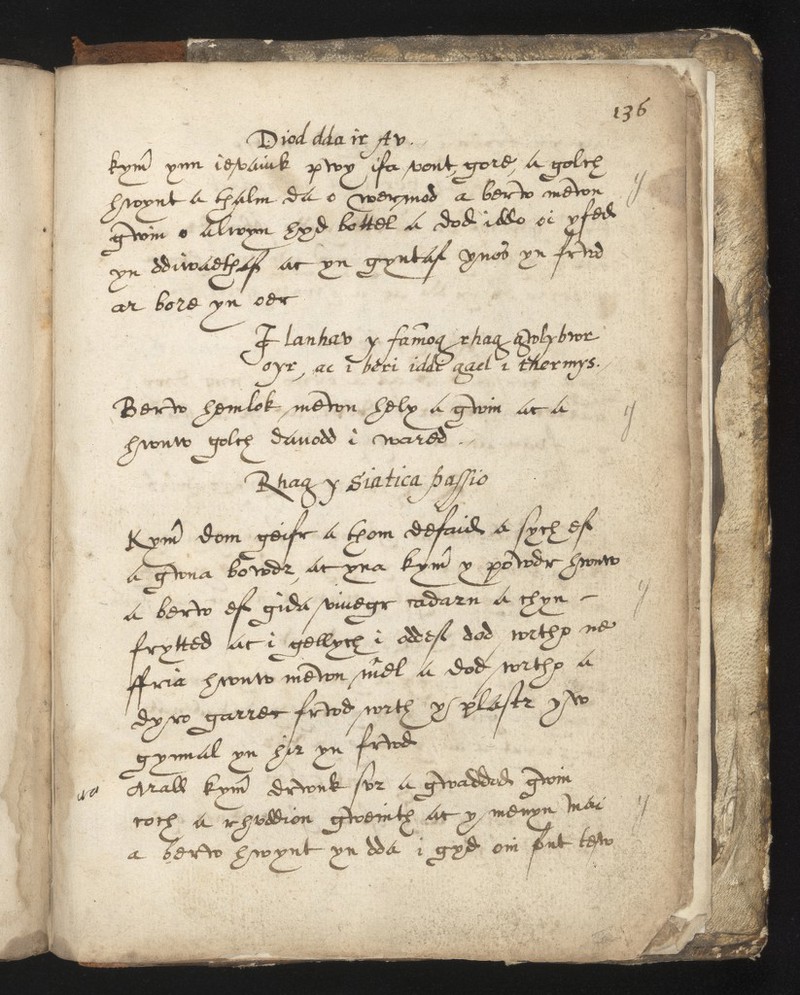 136
Diod dda ir Av.
kym̃ ynn ievaiuk pwy ifa vont gore, a golch
hwynt a thalm da o wermod a berw mewn
gwin o alwyn hyd bottel a dod iddo oi yfed
yn ddiwaethaf ac yn gyntaf ynos yn frwd
ar bore yn oer
I lanhav y fam̃og rhag gwlybwr
oyr, ac i beri iddi gael i thermys.
Berw hemlok mewn hely a gwin ac a
hwnw golch davodd i wared.
Rhag y Siatica passio
Kym̃ dom geifr a thom defaid a sych ef
a gwna bowdr, ac yna kym̃ y powdr hwnw
a berw ef gida vinegr cadarn a chyn –
frytted ac i gellych i oddef dod wrtho ne
ffria hwnw mewn mel a dod wrtho a
dyro garrec frwd wrth y plastr yw
gynnal yn hir yn frwd
Arall kym̃ drwnk sur a gwaddod gwin
coch a rhuddion gweinth ac ymenyn mai
a berw hwynt yn dda i gyd oni font tew